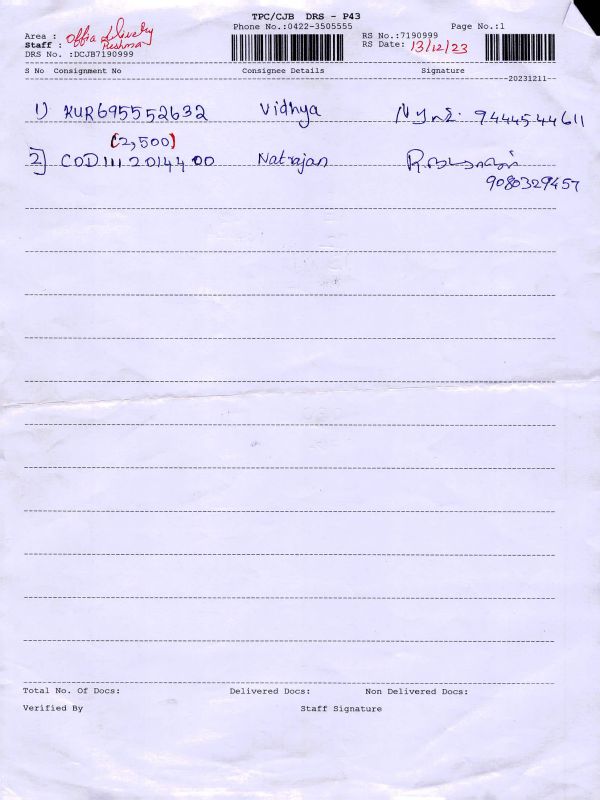 TPC/CJB DRS - P43
Area : Offia Delivery Phone No.:0422-3505555 Page No.:1
Staff : Reshma RS No.:7190999
DRS No. :DCJB7190999 RS Date: 13/12/23
S No Consignment No Consignee Details Signature
20231211--
1) KUR695552632 Vidhya 9444544611
(2,500)
2) COD111 2014400 Natrajan
9080329457
Total No. Of Docs: Delivered Docs: Non Delivered Docs:
Verified By Staff Signature